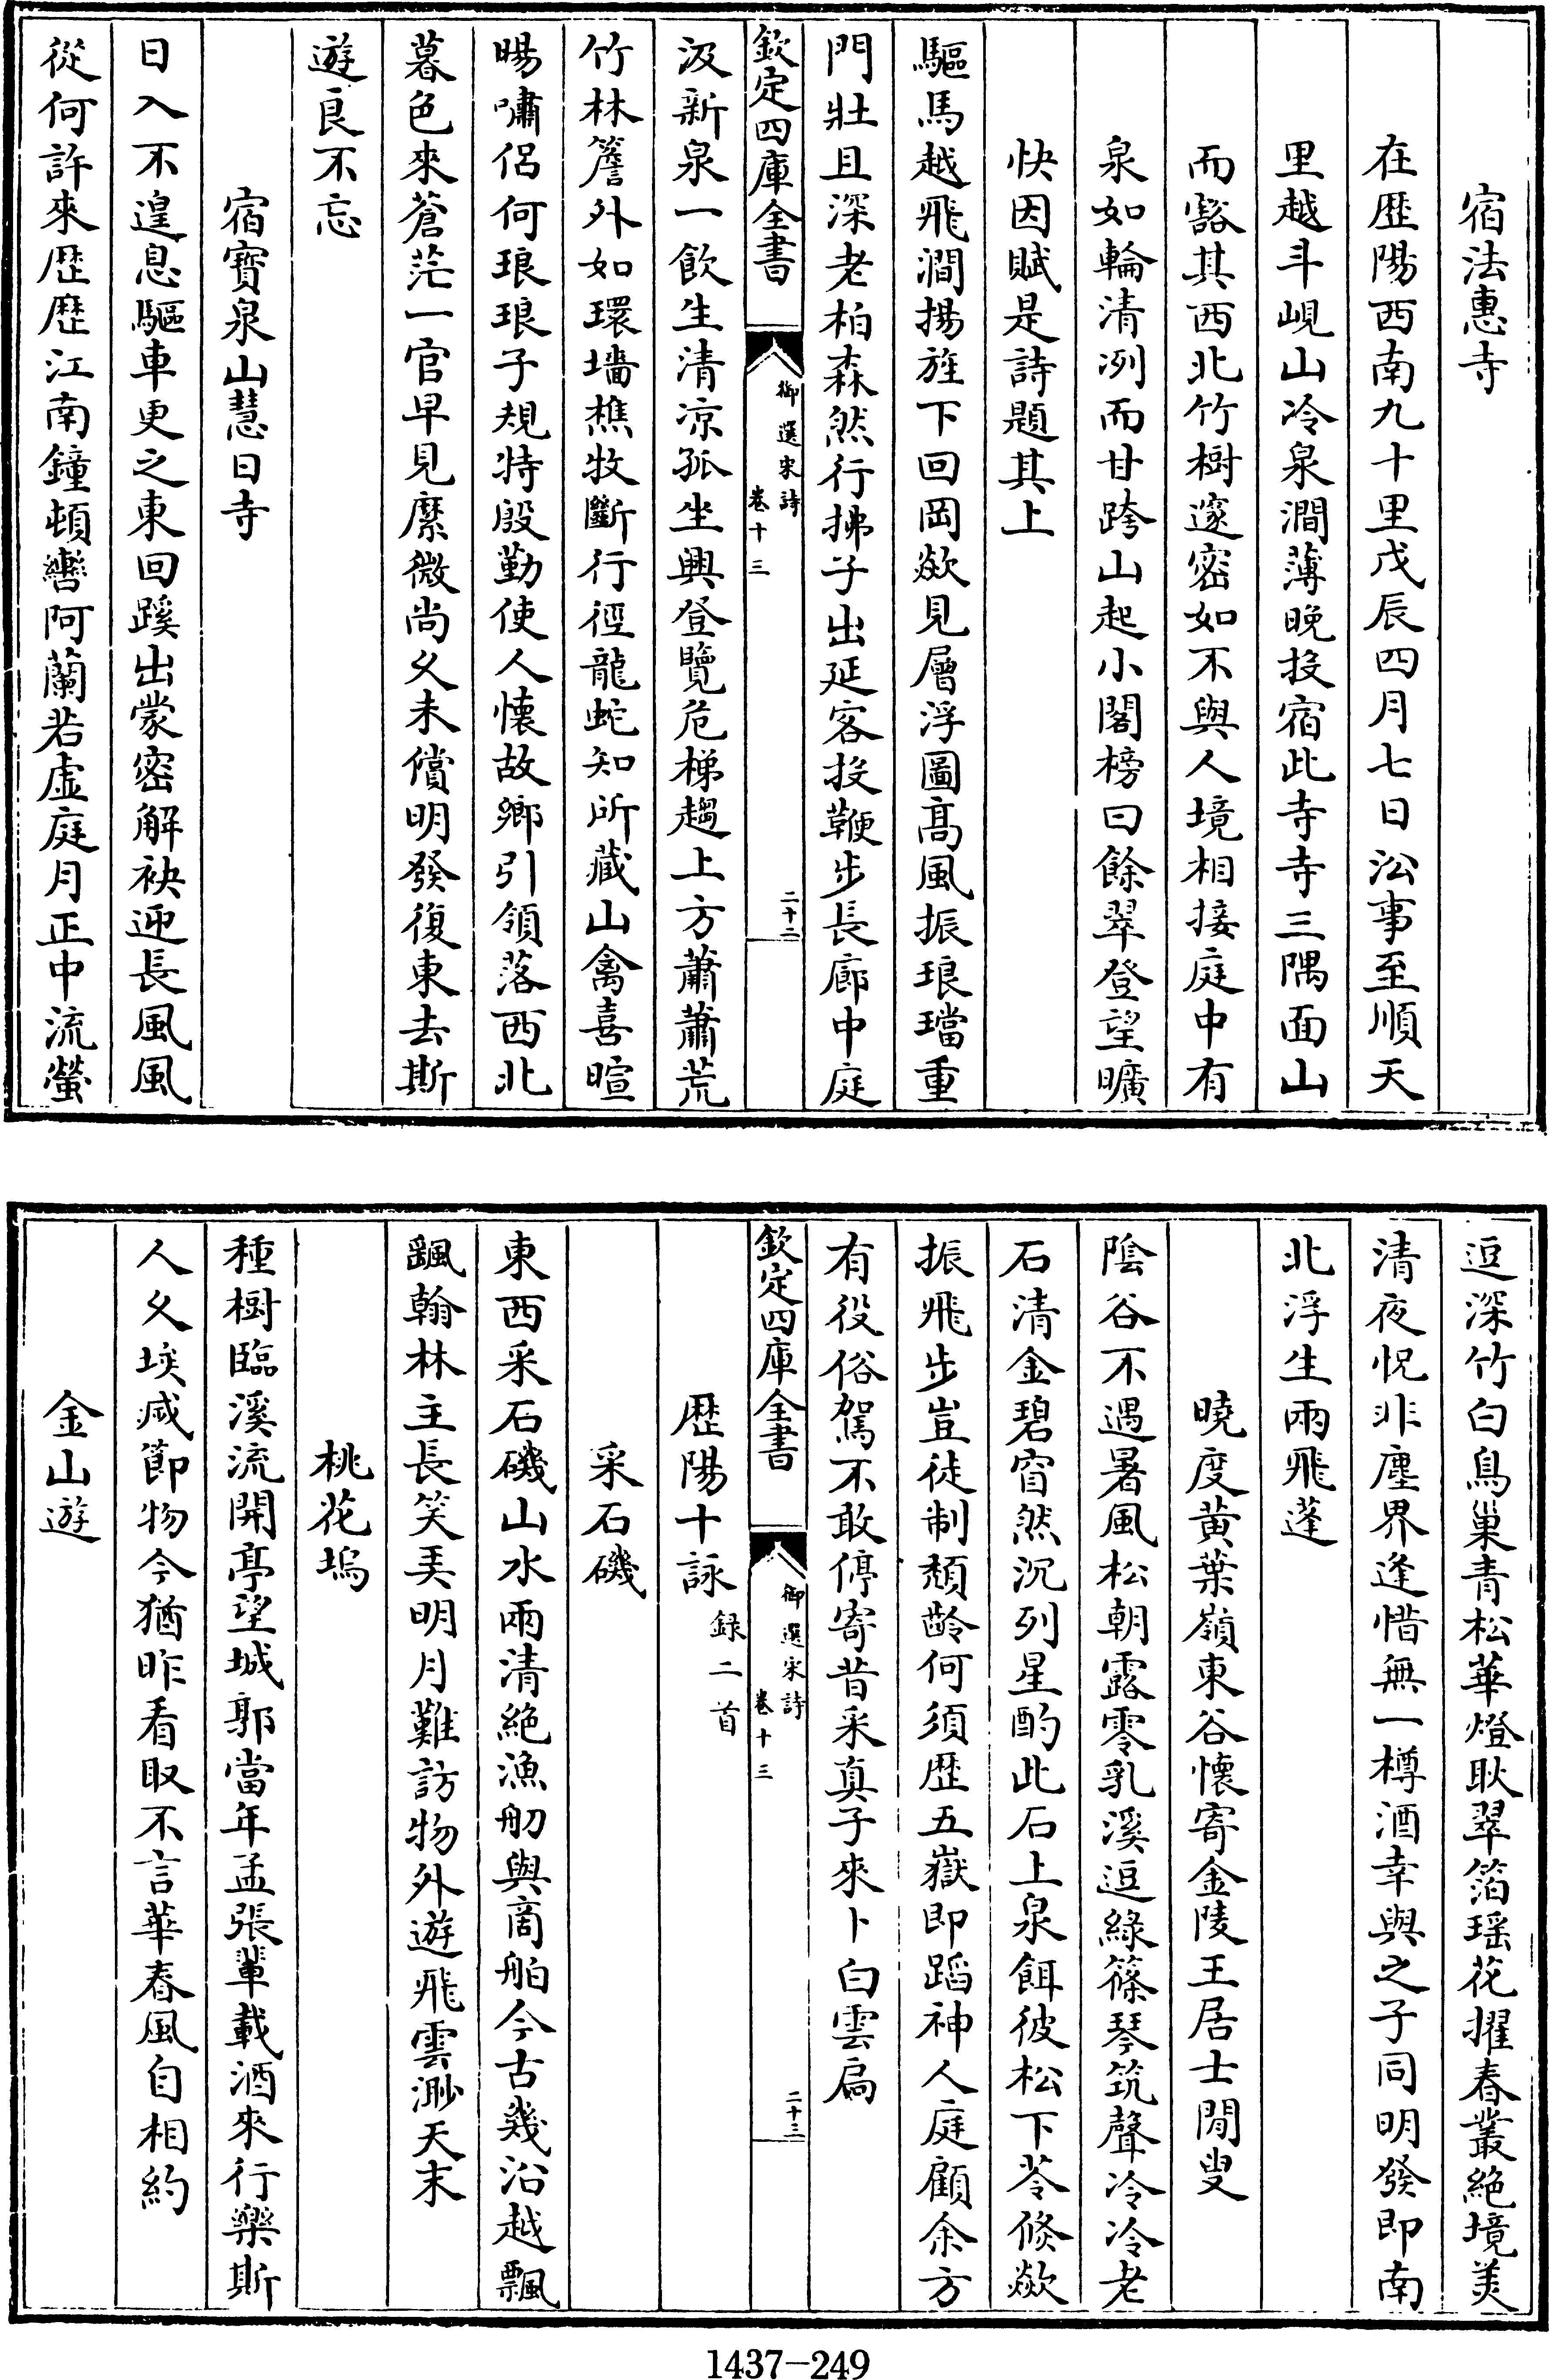 宿法惠寺
在歴陽西南九十里戊辰四月七日訟事至順天
里越斗峴山冷泉澗薄晚投宿此寺寺三隅面山
而豁其西北竹樹邃密如不與人境相接庭中有
泉如輪清冽而甘跨山起小閣榜曰餘翠登望曠
快因賦是詩題其上
驅馬越飛澗揚旌下回岡歘見層浮圖髙風振琅璫重
門壯且深老柏森然行拂子出延客投鞭步長廊中庭
欽定四庫全書
御選宋詩
卷十三
二十二
汲新泉一飲生清凉孤坐興登覽危梯趨上方蕭蕭荒
竹林簷外如環墻樵牧斷行徑龍蛇知所藏山禽喜暄
暘嘯侶何琅琅子規特殷勤使人懷故鄉引領落西北
暮色來蒼茫一官早見縻微尚久未償明發復東去斯
遊良不忘
宿寶泉山慧日寺
日入不遑息驅車更之東回蹊出蒙密解袂迎長風風
從何許來歴歴江南鐘頓轡阿蘭若虛庭月正中流螢
逗深竹白鳥巢青松華燈耿翠箔瑶花擢春叢絶境美
清夜怳非塵界逢惜無一樽酒幸與之子同明發即南
北浮生兩飛蓬
曉度黄葉嶺東谷懷寄金陵王居士閒叟
陰谷不遇暑風松朝露零乳溪逗綠篠琴筑聲泠泠老
石清金碧窅然沉列星酌此石上泉餌彼松下苓倐歘
振飛步豈徒制頽齡何須歴五嶽即蹈神人庭顧余方
有役俗駕不敢停寄昔采真子來卜白雲扃
欽定四庫全書
御選宋詩
卷十三
二十三
歴陽十詠録二首
采石磯
東西采石磯山水兩清絶漁舠與商舶今古幾沿越飄
飄翰林主長笑弄明月難訪物外遊飛雲渺天末
桃花塢
種樹臨溪流開亭望城郭當年孟張輩載酒來行樂斯
人久埃滅節物今猶昨看取不言華春風自相約
金山遊
1437-249